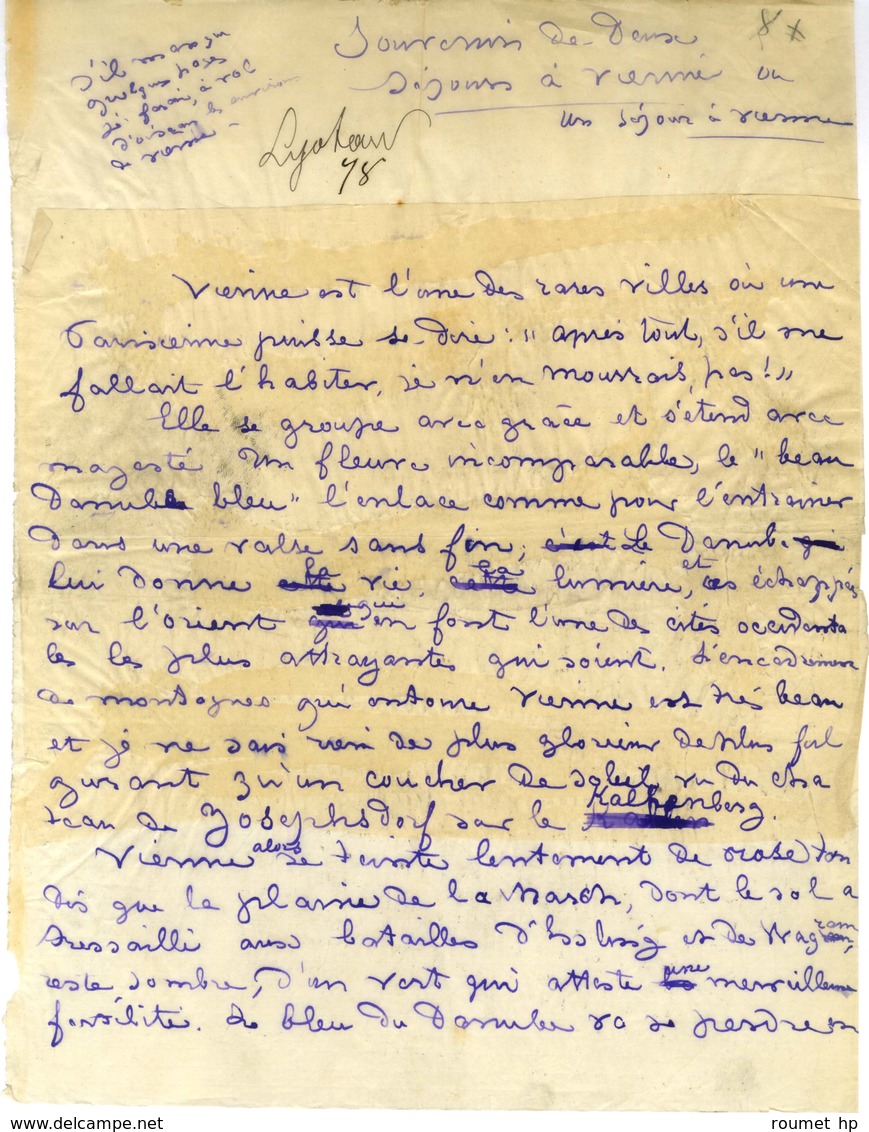 s'il manque
quelques pages
je ferai, à vol
d'oiseau les environs
de Vienne –
Souvenirs de Deux
séjours à Vienne ou
un séjour à Vienne
8
78
Vienne est l'une des rares villes où une
Parisienne puisse se dire : " après tout, s'il me
fallait l'habiter, je n'en mourrais pas ! "
Elle se groupe avec grâce et s'étend avec
majesté Un fleuve incomparable, le " beau
Danube bleu " l'enlace comme pour l'entrainer
Dans une valse sans fin ; c'est Le Danube qui
lui donne cette sa vie, cette sa lumière, et ces échappés
sur l'Orient qui qui en font l'une des cités occidenta
les les plus attrayantes qui soient. L'encadrement
de montagnes qui entoure Vienne est très beau
et je ne sais rien de plus glorieux de plus ful
gurant qu'un coucher de soleil vu du cha
teau de Josephsdorf sur le Kahlenberg.
Vienne alors se teinte lentement de rose tan
dis que la plaine de la March, dont le sol a
tressailli aux batailles d'Essling et de Wagram,
reste sombre, d'un vert qui atteste une merveilleuse
fertilité. Le bleu du Danube va se perdre en
roumet hp